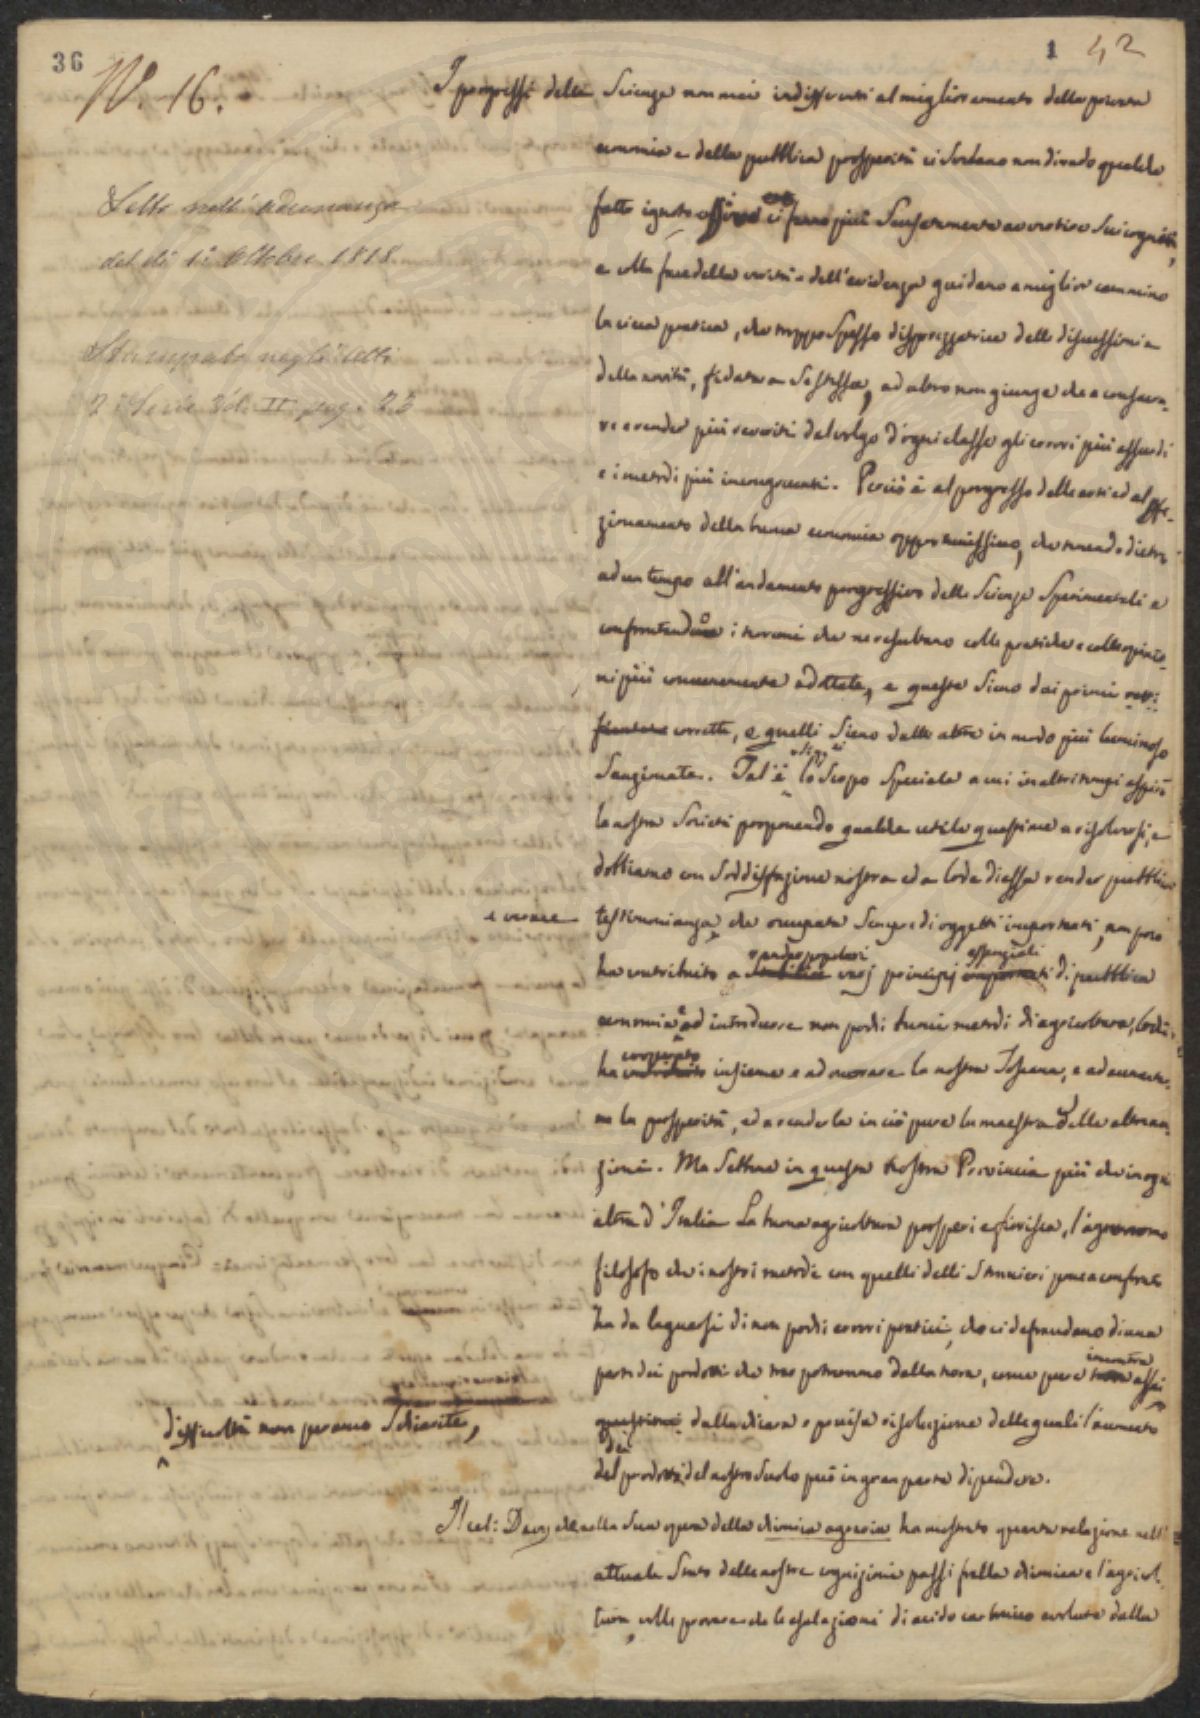 36
1 42
N. 16.
Letto nell'adunanza
del dì 1° Ottobre 1818
Stampato negli Atti
2ª Serie Vol. II pag. 23
I progressi delle Scienze non mai indifferenti al miglioramento della privata
economia e della pubblica prosperità ci svelano non di rado qualche
fatto ignoto ci fanno più
e alla face della verità e dell'evidenza guidano a miglior cammino
la cieca pratica, che troppo spesso disprezzatrice delle discussioni e
della novità, fidata a se stessa, ad altro non giunge che a conserva-
re e render più accetti dal volgo d'ogni classe gli errori più assurdi
e i metodi più incongruenti. Perciò è al progresso delle arti ed al perfe-
zionamento della buona economia opportunissimo, che tenendo dietro
ad un tempo all'andamento progressivo delle Scienze Sperimentali e
confrontando i teoremi che ne resultano colle pratiche e colle opinio-
ni più comunemente adottate, e queste sieno dai primi retti-
ficate corrette, e quelli sieno dalle altre in modo più luminoso
sanzionate. Tal'è lo Scopo Speciale a cui in altri tempi aspirò
la nostra Società proponendo qualche utile questione a risolversi, e
dobbiamo con soddisfazione nostra ed a lode di essa render pubblica
e verace
testimonianza che occupata sempre di oggetti importanti, non poco
render popolari essenziali
ha contribuito a stabilire varj principj importanti di pubblica
economia ed introdurre non pochi buoni metodi di agricoltura, lochè
ha contribuito insieme e ad onorare la nostra Toscana, e ad aumentar-
ne la prosperità, ed a renderla in ciò pure la maestra delle altre na-
zioni. Ma sebbene in questa nostra Provincia più che in ogni
altra d'Italia la buona agricoltura prosperi e fiorisca, l'agronomo
filosofo che i nostri metodi con quelli delli Stranieri pone a confronto
ha da lagnarsi di non pochi errori pratici, che ci defraudano di una
parte dei prodotti che trar potremmo dalla terra, come pure incontra assai
difficoltà non per anco schiarite,
questioni dalla chiara e precisa risoluzione delle quali l'aumento
dei
del prodotti del nostro suolo può in gran parte dipendere.
Il cel: Davy nella sua opera della chimica agraria ha mostrato quanta relazione nell'
attuale stato delle nostre cognizioni passi fralla chimica e l'agricol-
tura, colle provare che le esalazioni di acido carbonico evolute dalla